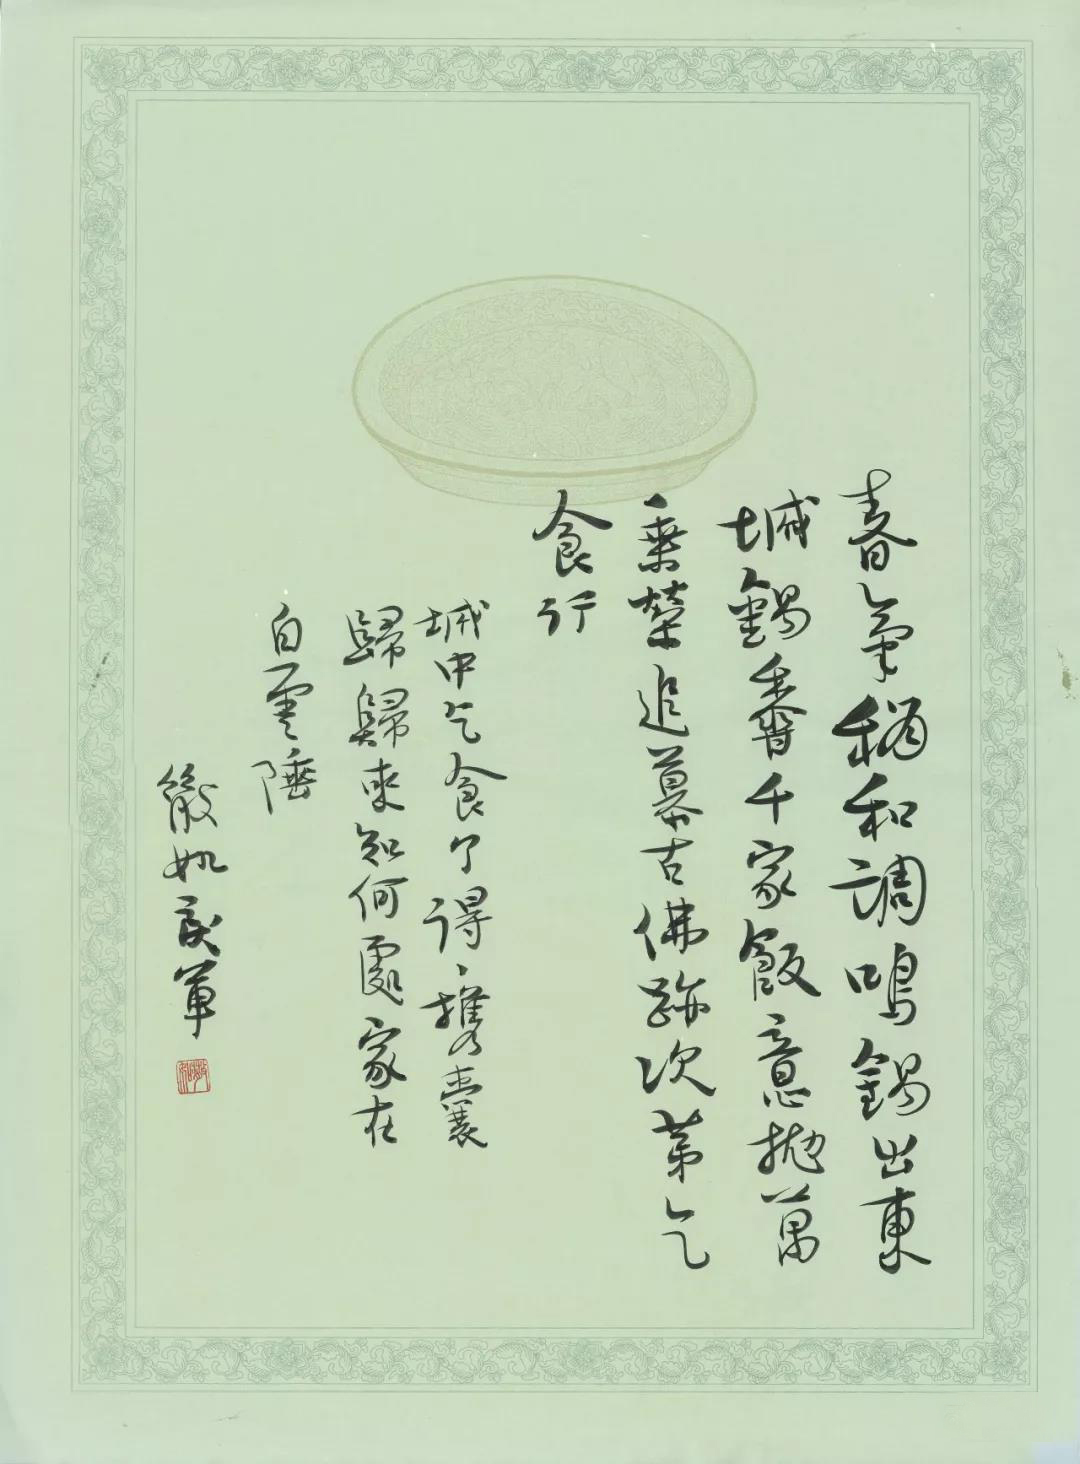 春氣稍和調鳴錫出東
城錫香千家飯意拋萬
乘榮追慕古佛跡次第乞
食行
城中乞食了得、攜囊
歸歸來知何處家在
白雲陲
軍